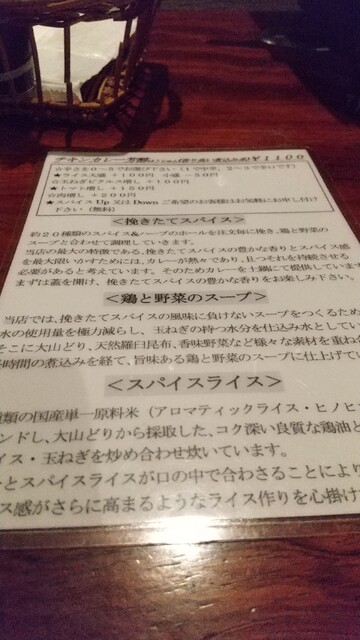 チキンカレー芳醇 ¥1100
★ライス大盛 +100円 小盛 -50円
☆玉ねぎピクルス増し +100円
★トマト増し +150円
☆肉増し +200円
★スパイス Up 又は Down ご希望のお客様はお気軽にお申し付け
下さい(無料)
<挽きたてスパイス>
約20種類のスパイス&ハーブのホールを注文毎に挽き、鶏と野菜の
スープと合わせて調理していきます。
当店の最大の特徴である、挽きたてスパイスの豊かな香りとスパイス感
を最大限いかすためには、カレーが熱々であり、且つそれを持続させる
必要があると考えています。そのためカレーを土鍋にて提供しています
まずは蓋を開け、挽きたてスパイスの豊かな香りをお楽しみ下さい。
<鶏と野菜のスープ>
当店では、挽きたてスパイスの風味に負けないスープをつくるため
水の使用量を極力減らし、玉ねぎの持つ水分を仕込み水としてい
そこに大山どり、天然羅臼昆布、香味野菜など様々な素材を重ね
時間の煮込みを経て、旨味ある鶏と野菜のスープに仕上げてい
<スパイスライス>
種類の国産単一原料米(アロマティックライス・ヒノヒ
ンドし、大山どりから採取した、コク深い良質な鶏油と
イス・玉ねぎを炒め合わせ炊いています。
とスパイスライスが口の中で合わさることにより
ス感がさらに高まるようなライス作りを心掛け